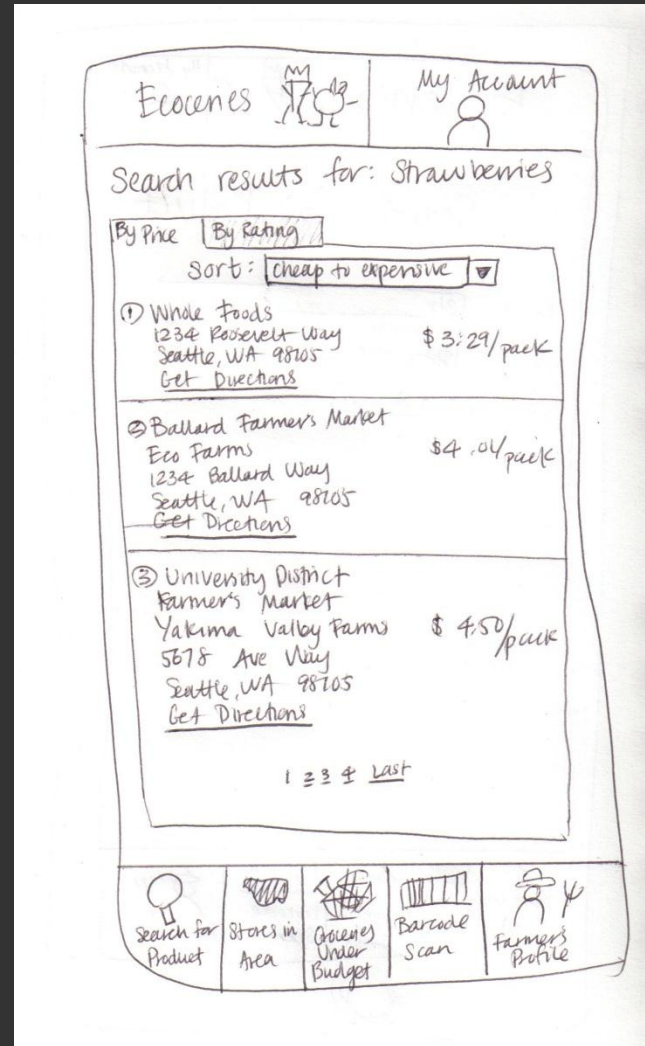 Ecoceries
My Account
Search results for: Strawberries
By Price By Rating
Sort: cheap to expensive
① Whole Foods
1234 Roosevelt Way
Seattle, WA 98105
Get Directions
$3.29/pack
② Ballard Farmer's Market
Eco Farms
1234 Ballard Way
Seattle, WA 98105
Get Directions
$4.04/pack
③ University District
Farmer's Market
Yakima Valley Farms
5678 Ave Way
Seattle, WA 98105
Get Directions
$4.50/pack
1 2 3 4 Last
Search for
Product
Stores in
Area
Groceries
Under
Budget
Barcode
Scan
Farmer's
Profile